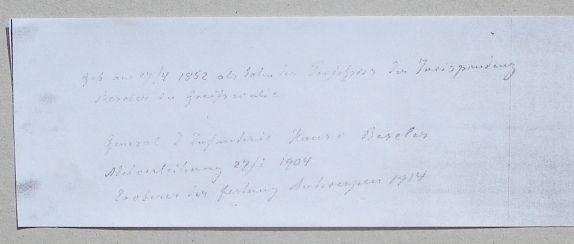 Geb am 27/4 1852 als Sohn des Professors der Jurisprudenz
Beseler in Greifswald
General d Infanterie Hans v Beseler
Adelverleihung 27/1 1904
Eroberer der Festung Antwerpen 1914